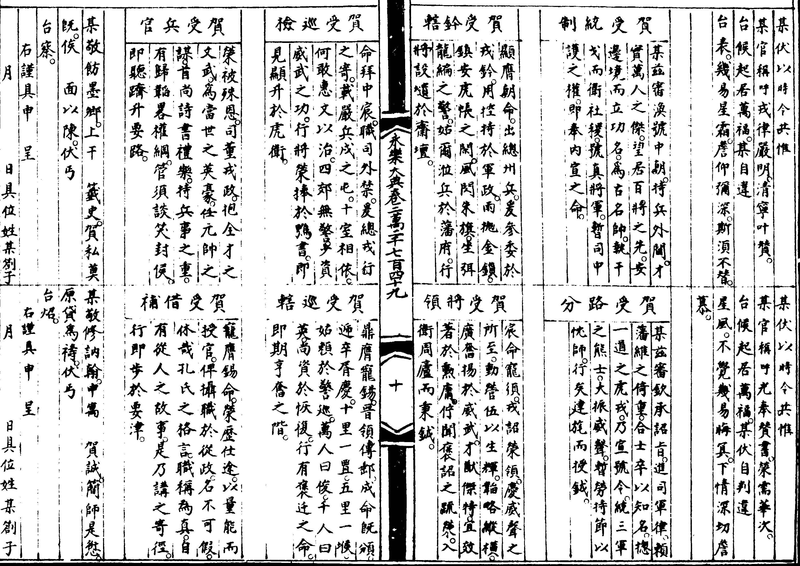 某伏以時令共惟
某官稱呼戎律嚴明清寧叶贊
台候起居萬福某自違
台表幾易星霜詹仰彌深斯須不替
賀受統制
某茲審渙號中朝持兵外閫才
實萬人之傑望若百將之先安
邊境而立功名為古名師執干
戈而衛社稷號真將軍暫司中
護之權即奉內宣之命
賀受鈐轄
顯膺朝命出總州兵爰參委於
戎鈐用控持於軍政雨拋金鎖
鎮安虎帳之閒風閃朱旗坐弭
龍編之警姑爾涖兵於藩府行
將設壇於齋壇
某伏以時令共惟
某官稱呼光奉贊書榮需華次
台候起居萬福某伏自判違
星風不覺幾易晦冥下情深切詹
慕
賀受路分
某茲審欽承詔旨進司軍律賴
藩維之倚重合士卒以知名總
一道之虎戎乃宣號令統三軍
之熊士大振威聲暫勞持節以
帥行矣建旄而授鉞
賀受將領
宸命寵頒戎詔榮領慶威聲之
所至動營伍以生輝韜略縱橫
廣奮揚於威武才猷傑特宜效
著於勳庸佇聞褒詔之疏榮入
衛周廬而秉鉞
永樂大典卷三萬二千七百四十九
十
賀受巡檢
命拜中宸職司外禁爰總戎行
之寄載嚴兵戍之屯十室相依
何敢惠文以治四郊無警爭資
威武之功行將榮捧於鶚書即
見顯升於虎衛
賀受兵官
榮被殊恩司董戎政抱全才之
文武為當世之英豪任元帥之
謀首尚詩書禮樂持兵事之重
有歸韜畧權綱管須談笑封侯
即聽躋升要路
某敬飭墨卿上干 籤史賀私莫
既俟 面以陳伏丐
台察
右謹具申 呈
月 日具位姓某劄子
賀受巡轄
鼎膺寵錫晉領傳郵成命既頒
迎卒胥慶十里一置五里一堠
姑賴於警巡萬人曰俊千人曰
英高資於恢復行有褒遷之命
即期亨奮之階
賀受借補
寵膺錫命榮歷仕途以量能而
授官俾攝職於從政名不可假
休哉孔氏之格言職稱為真自
有從人之故事是乃講之寄徑
行即步於要津
某敬修訥翰申寓 賀誠簡師是愆
原貸為禱伏丐
台炤
右謹具申 呈
月 日具位姓某劄子